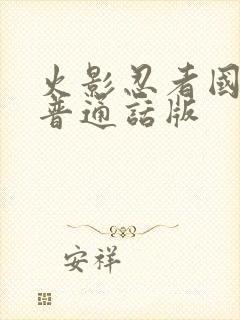 火影忍者國
普通話版
安祥